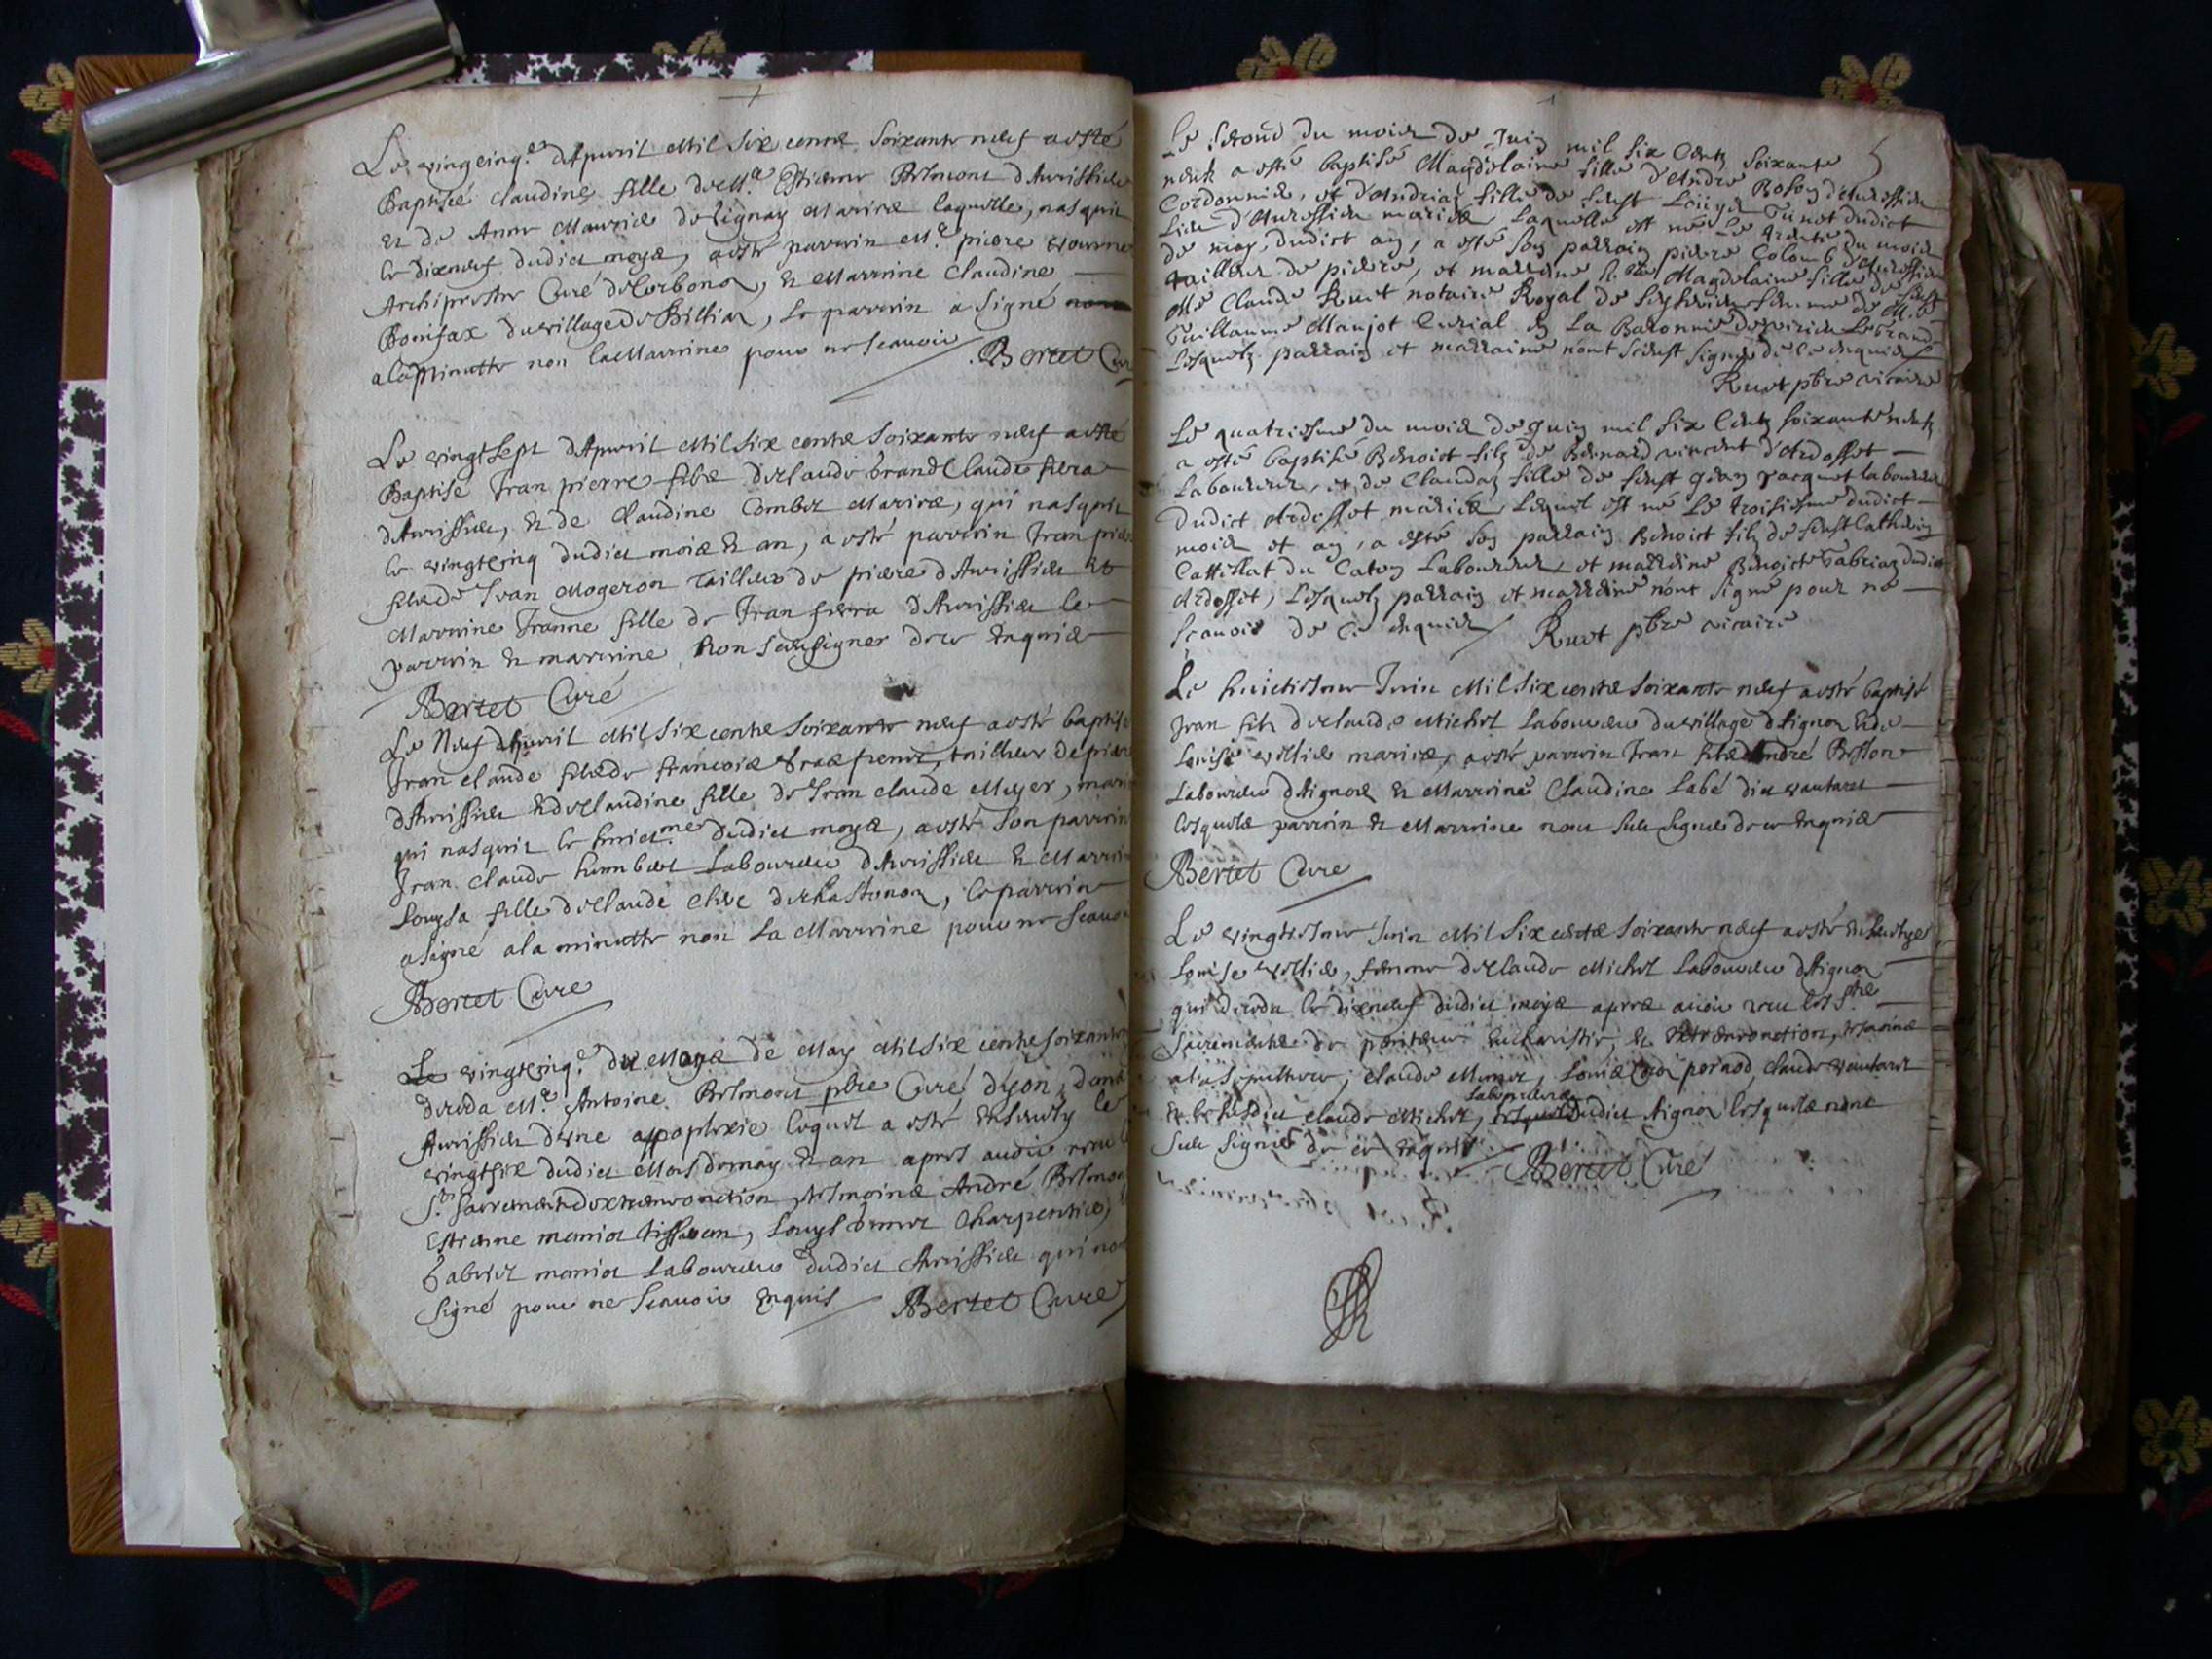 Le vingcinq.e d'Apuril Mil six centz soixante neuf a esté
Baptisé Claudine fille de M.e Estienne Belmont d'Aurissieu
et de Anne Mauricé de Lignay Mariez laquelle, nasquit
le dixneuf dudict moys, a esté parrin M.e piere
Archiprestre Curé de Corbonoz, et Marrine Claudine
Bonifax du village de Billiaz, Le parrin a signé
a la Minutte non la Marrine pour ne scauoir Bertet Cur
Le vingtsept d'Apuril Mil six centz soixante neuf a esté
Baptisé Jean pierre filz de Claude brand Claude
d'Aurissieu, et de Claudine Combet Mariez, qui nasquit
le vingtcinq dudict moiz et an, a esté parrin Jean
filz de Jean Mogeron Tailleur de piere d'Aurissieu et
Marrine Jeanne fille de Jean d'Aurissieu le
parrin et marrine Non sceu signer de ce Enquis
Bertet Curé
Le Neuf d'Apuril Mil six centz soixante neuf a esté baptisé
Jean Claude filz de francois tailleur de piere
d'Aurissieu et de Claudine fille de Jean Claude Meyer,
qui nasquit le huict.me dudict moys, a esté son parrin
Jean Claude humbert Laboureur d'Aurissieu et Marrine
Louysa fille de Claude de Chastonoz, le parrin
a signé a la minutte non La Marrine pour ne scauoir
Bertet Curé
Le vingtcinq.e du Moys de May Mil six centz soixante
deceda M.e Antoine Belmont pbre Curé d'yon, dans
Aurissieu d'une appoplexie lequel a esté Enseuely le
vingtsix dudict Mois de may et an apres auoir receu
S.t Sacrement d'extremeonction, tesmoins André Belmont
Estienne moniot tisseran, Louys Charpentier,
Gabriel moniot Laboureur dudict Aurissieu qui
signé pour ne scauoir Enquis Bertet Curé
5
Le second du moid de Juin mil six Centz soixante
neuf a esté baptisé Magdelaine fille d'Andre Boson d'Auressieu
Cordonnier, et d'Andriaz fille de feust Louys Tunot dudict
Lieu d'Auressieu mariez, Laquelle est né Le trente du moid
de may dudict an, a esté son parrain pierre Colomb d'Auressieu
tailleur de pierre, et marrine Magdelaine fille de feust
Mé Claude Ruet notaire Royal de femme de M.e
Guillaume Maujot Curial en La Baronnie de virieu Le Grand
Lesquelz parrain et marraine n'ont sceust signer de ce enquis
Ruet pbre vicaire
Le quatriesme du moid de Juin mil six Centz soixante neuf
a esté baptisé Benoist filz de Bernard vincent d'Ardosset
Laboureur, et de Claudaz fille de feust Jean Jacquet laboureur
dudict Ardosset mariez, Lequel est né Le troisiesme dudict
moid et an, a esté son parrain Benoist filz de feust Cathelin
Cattillat du Caton Laboureur, et marrine Benoiste Fabriaz dudict
Ardosset, Lesquelz parrain et marrine n'ont signé pour ne
scauoir de ce enquis Ruet pbre vicaire
Le huictiesme Juin Mil six centz soixante neuf a esté baptisé
Jean filz de Claude Michel Laboureur du village d'Aignoz et de
Louise mariez, a esté parrin Jean filz d'André Beston
Laboureur d'Aignoz et Marrine Claudine Labé dict vautaret
lesquelz parrin et Marrine nont sceu signer de ce Enquis
Bertet Curé
Le vingtiesme Juin Mil six centz soixante neuf a esté enseuelye
Louise femme de Claude Michel Laboureur d'Aignoz
qui deceda le dixneuf dudict moys apres auoir receu les S.tz
sacrementz de penitence Eucharistie, et Extremeonction,
a la sepulture, Claude Monet, Louis pernod, Claude vautaret
Laboureurs
et le susdict Claude Michel, dudict Aignoz lesquelz nont
sceu signer de ce Enquis Bertet Curé